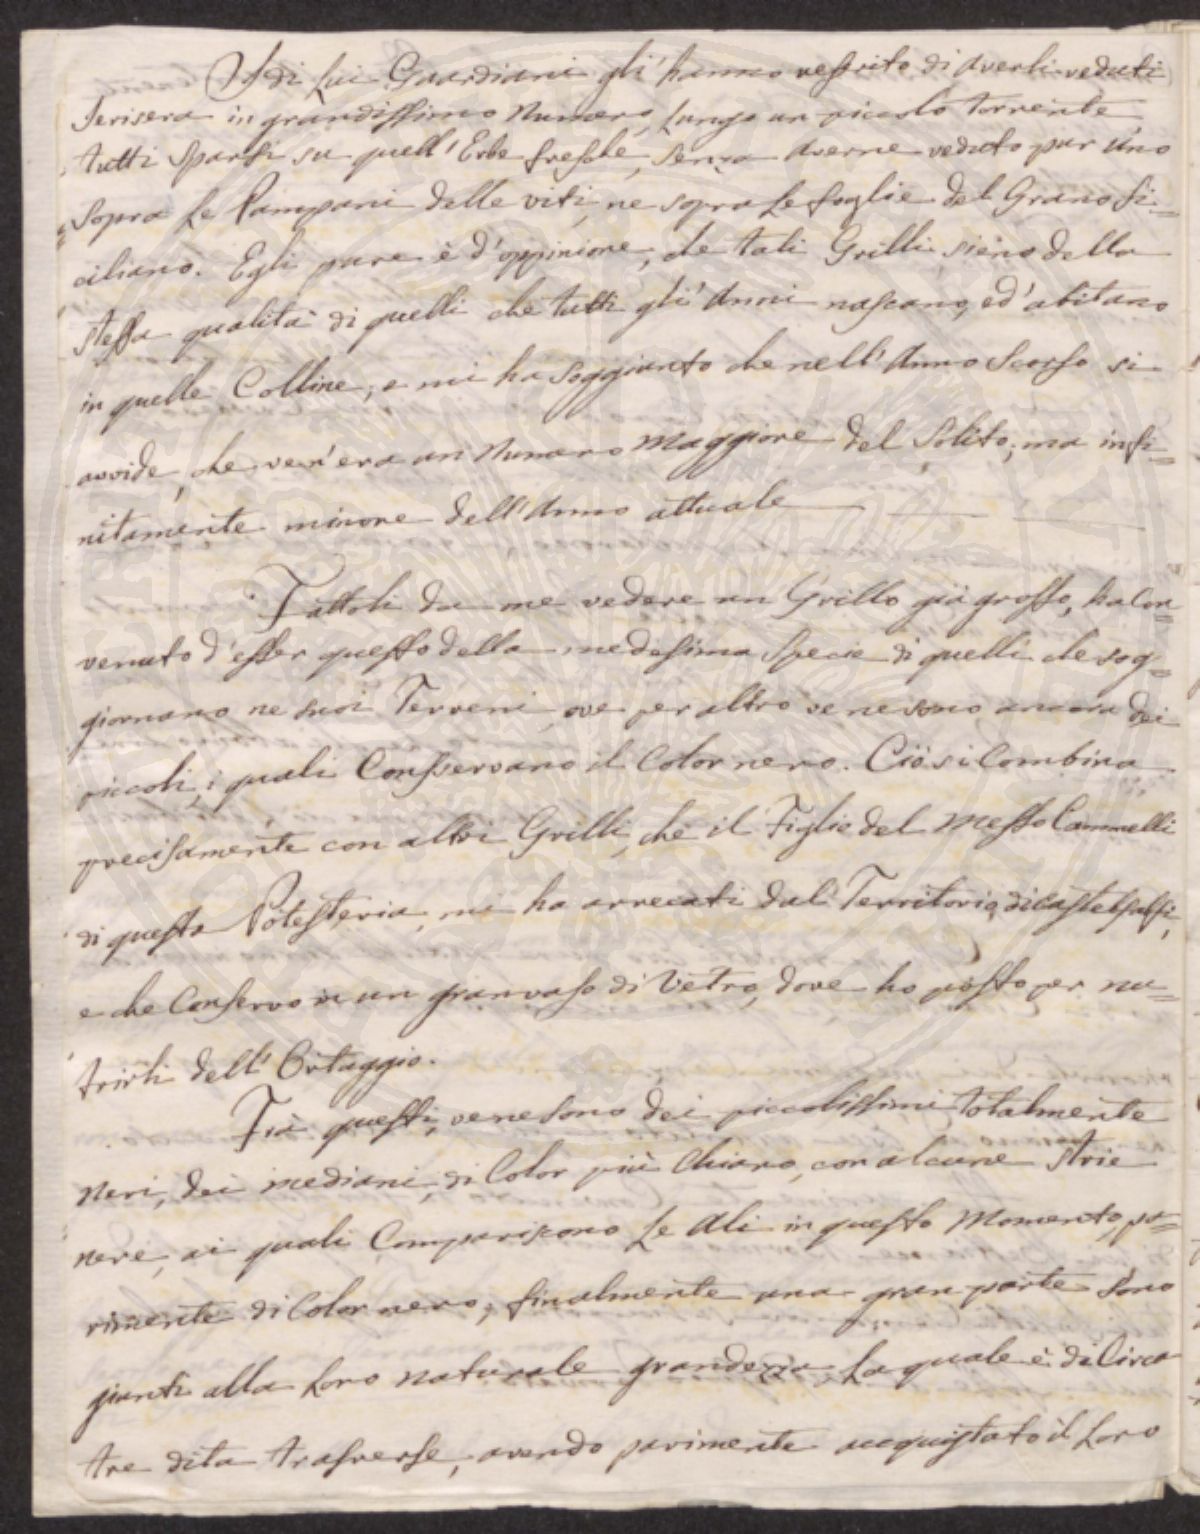 I di Lui Guardiani gli' hanno vestrito di averli veduti
Jerisera in grandissimo Numero, Lungo un piccolo Torrente,
tutti sparsi su quell' Erbe fresche, senza averne veduto pur uno
sopra Le Pampani delle viti, ne sopra Le foglie del Grano Si=
ciliano. Egli pure è d'oppinione, che tali Grilli sieno della
stessa qualità di quelli che tutti gli' Anni nascano, ed' abitano
in quelle Colline, e mi ha soggiunto che nell' Anno Scorso si
avvide, che ven'era un Numero Maggiore del Solito, ma infi=
nitamente minore dell' Anno attuale
Fattoli da me vedere un Grillo già grosso, ha Con=
venuto d'esser questo della medesima Specie di quelli che sog=
giornano ne suoi Terreni, ove per altro ve ne sono ancora dei
piccoli, i quali Conservano il Color nero. Ciò si Combina
precisamente con altri Grilli, che il Figlio del Messo Cammelli
di questa Potesteria, mi ha arrecati dal Territorio di Castelfalfi,
e che Conservo in un gran vaso di Vetro, dove ho posto per nu=
trirli dell' Ortaggio.
Frà questi, ve ne sono dei piccolissimi totalmente
Neri, dei mediani, di Color più Chiaro, con alcune strie
nere, ai quali Compariscono Le Ali in questo Momento, pa=
rimente di Color nero, finalmente una gran parte sono
giunti alla Loro naturale grandezza, La quale è di Circa
tre dita trasverse, avendo parimente acquistato il Loro